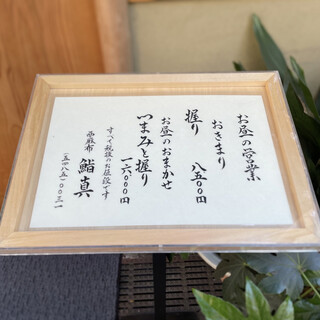 お昼の営業
おきまり
握り 八五〇〇円
お昼のおまかせ
つまみと握り
一六〇〇〇円
すべて税抜のお値段です
西麻布 鮨真
(五四八五)〇〇三一